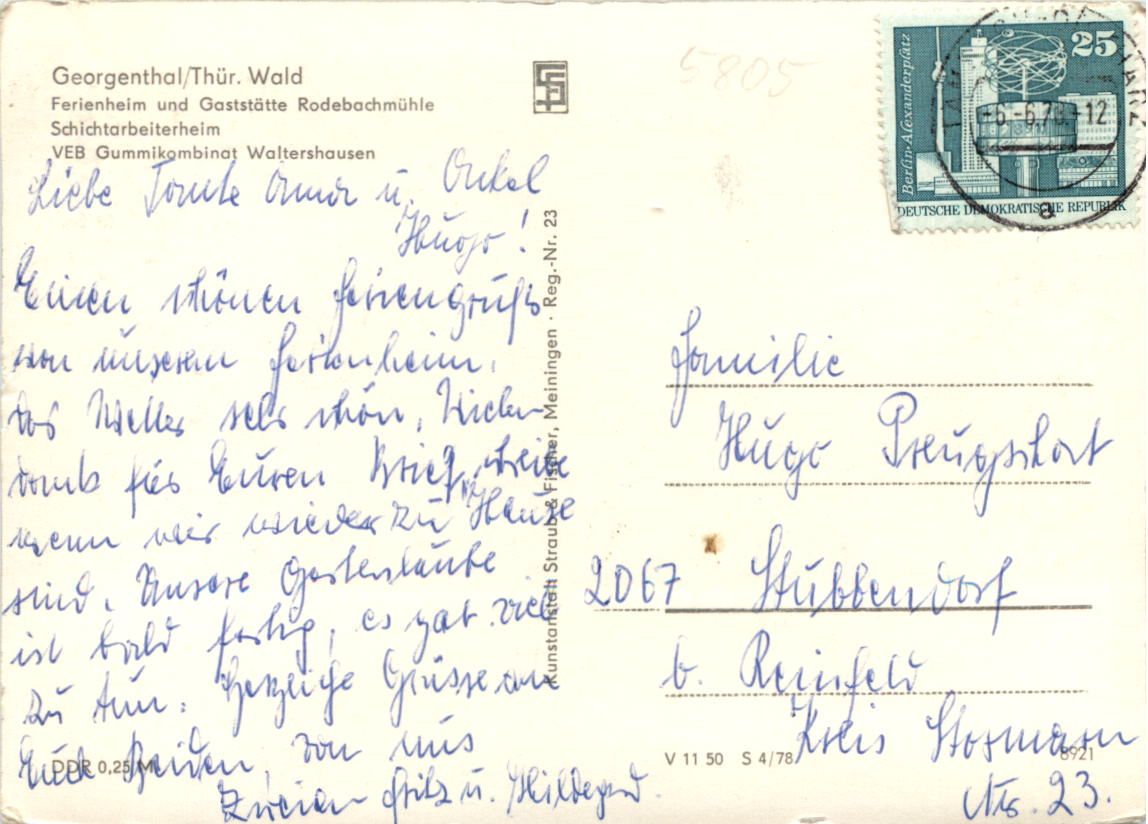 Georgenthal/Thür. Wald
Ferienheim und Gaststätte Rodebachmühle
Schichtarbeiterheim
VEB Gummikombinat Waltershausen
Liebe Tante Anna u. Onkel
Hugo!
Einen schönen Feriengruß
von unserem Ferienheim.
Das Wetter sehr schön. Vielen
dank für Euren Brief, schreibe
wenn wir wieder zu Hause
sind. Unsere Gartenlaube
ist bald fertig, es gab viel
zu tun. Herzliche Grüsse an
Euch Beiden, von uns
Zweien Fritz u. Hildegard.
DDR 0,25 M
Kunstanstalt Straub & Fischer, Meiningen · Reg.-Nr. 23
5805
Berlin-Alexanderplatz
25
DEUTSCHE DEMOKRATISCHE REPUBLIK
-6.-6.78.-12
a
Familie
Hugo
2067 Stubbendorf
b. Reinfeld
Kreis Stormarn
Nr. 23.
V 11 50 S 4/78
8921